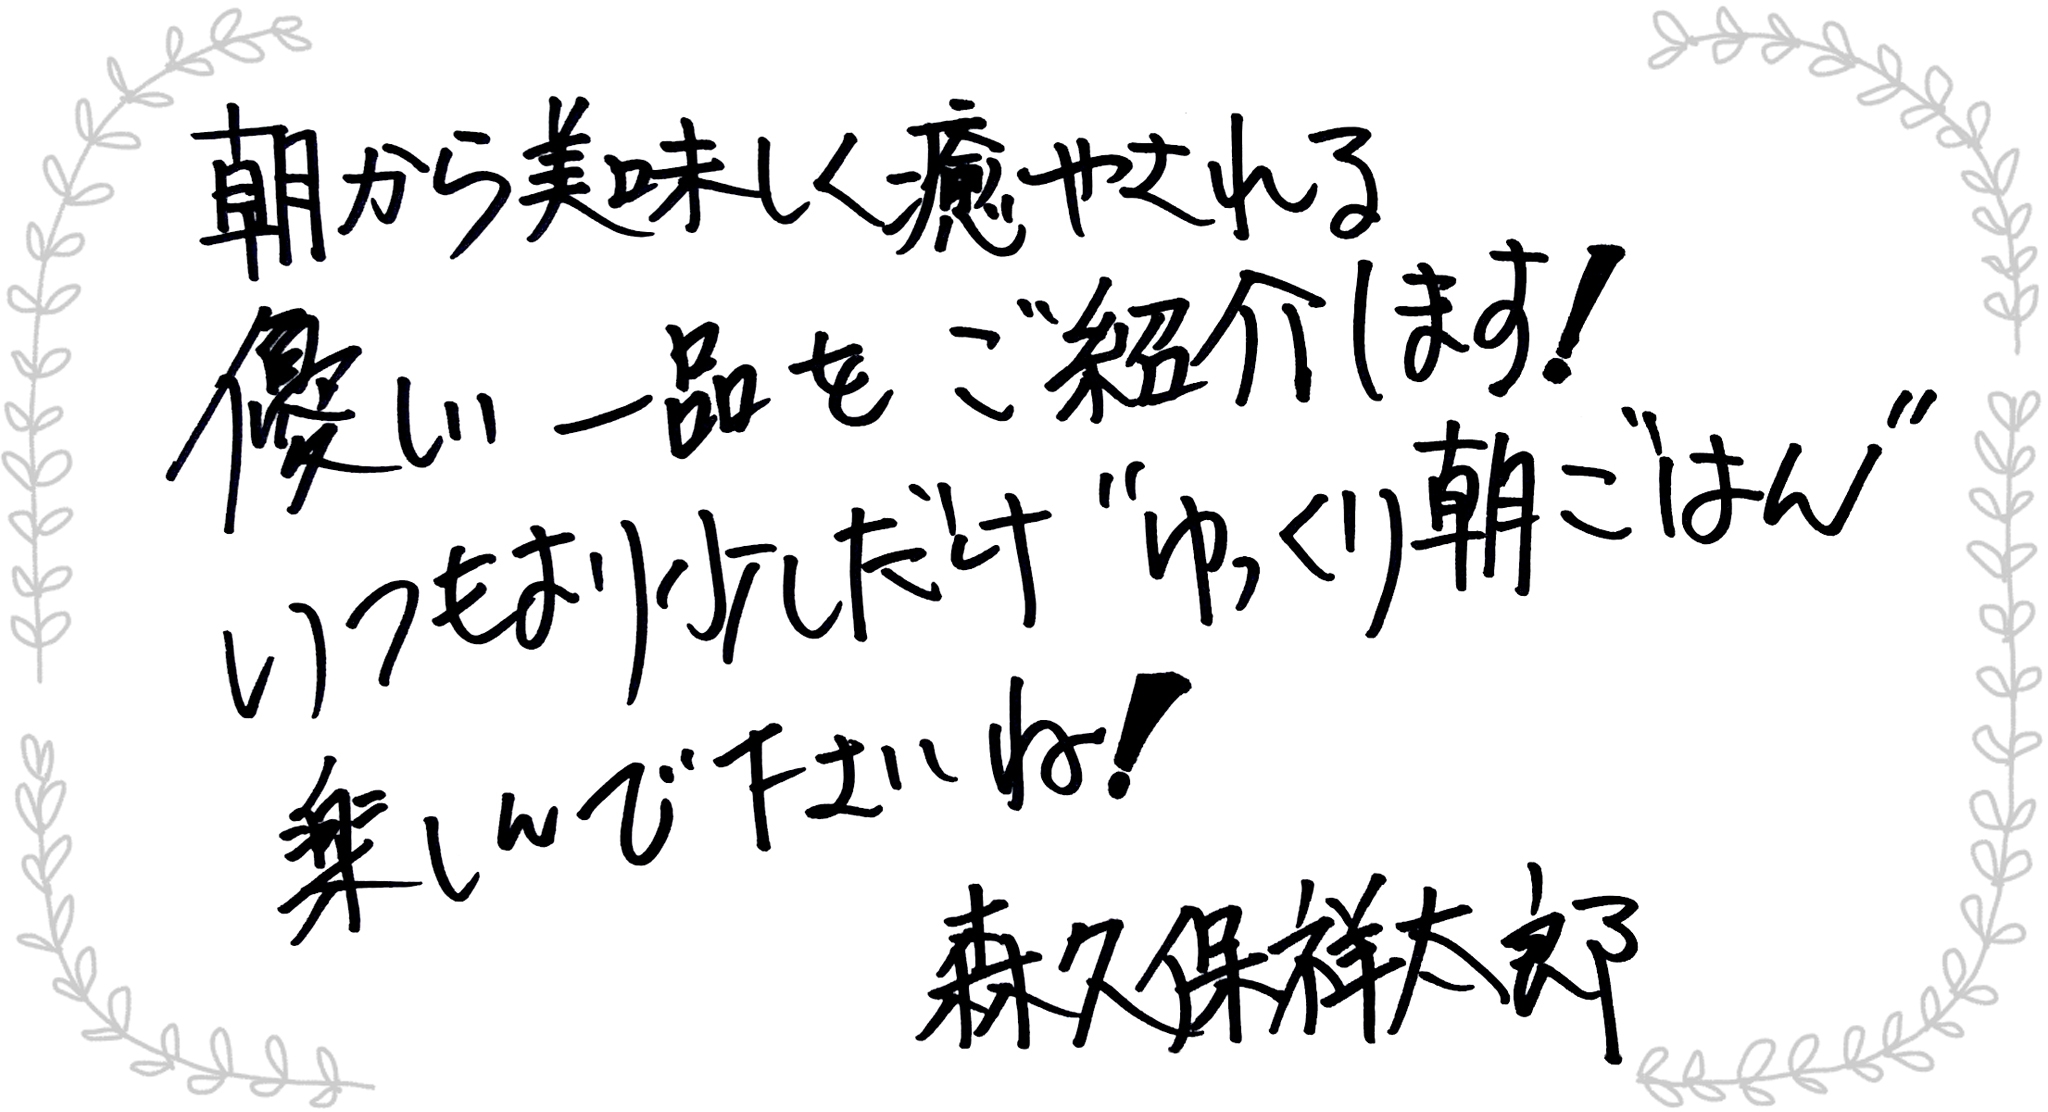 朝から美味しく癒やされる
優しい一品をご紹介します！
いつもより少しだけ〝ゆっくり朝ごはん〟
楽しんで下さいね！
森久保祥太郎